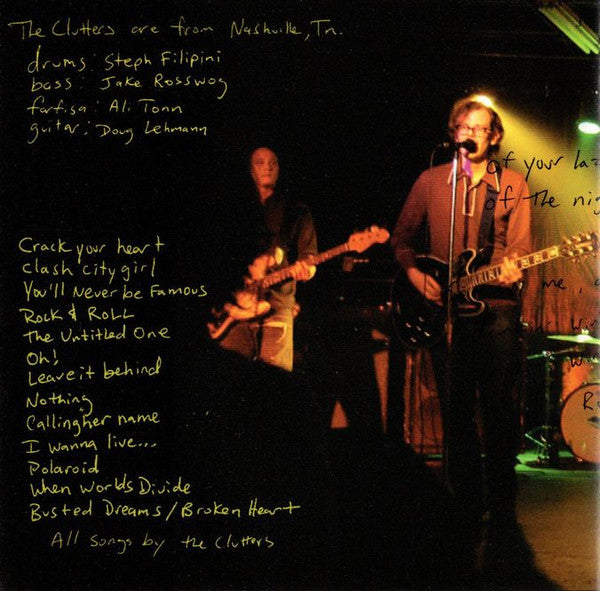 The Clutters are from Nashville, Tn.
drums: Steph Filipini
bass: Jake Rosswog
farfisa: Ali Tonn
guitar: Doug Lehmann
of your la
of the nig
me,
Crack your heart
Clash city girl
You'll Never be Famous
Rock & Roll
The Untitled One
Oh!
Leave it behind
Nothing
Calling her name
I wanna live...
Polaroid
When Worlds Divide
Busted Dreams/Broken Heart
All songs by the Clutters